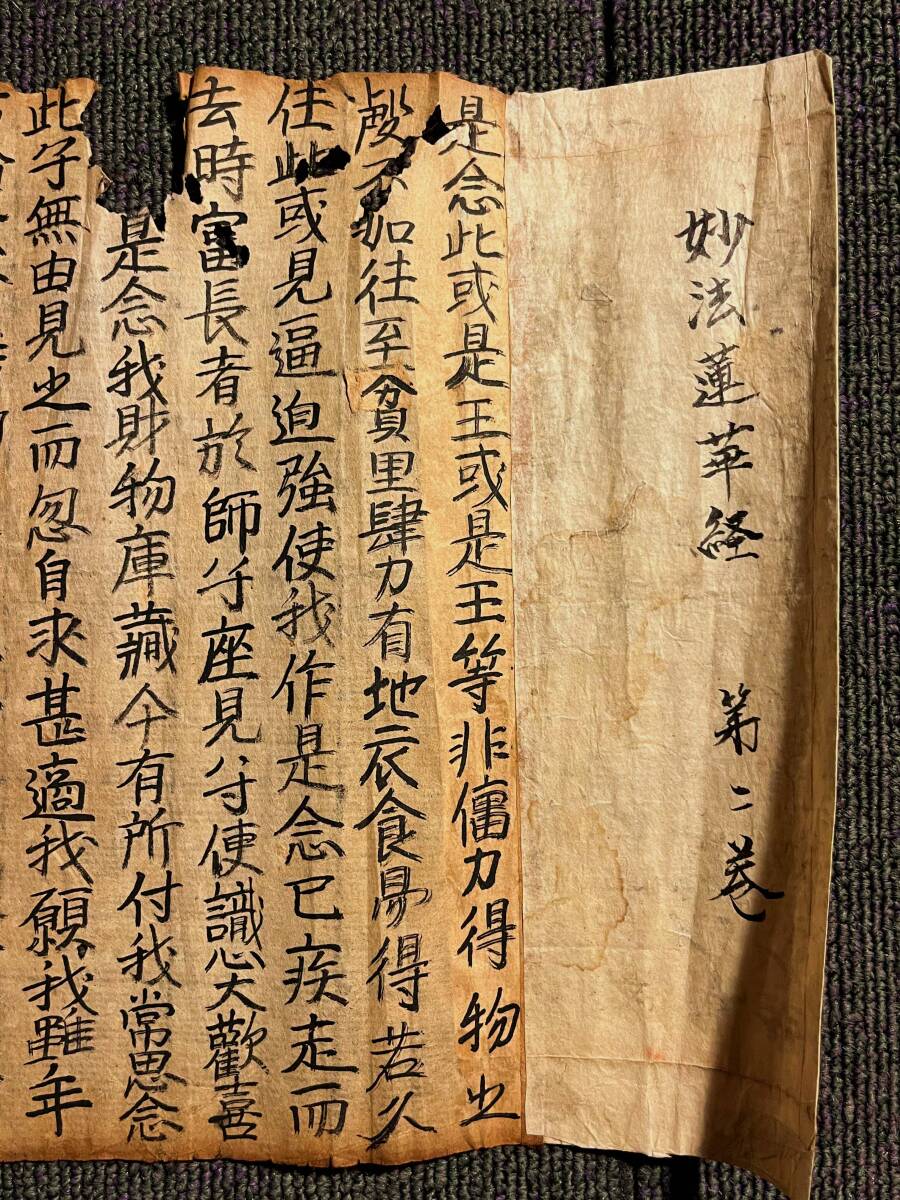 妙法蓮華経 第二巻
是念此或是王或是王等非傭力得物之
處不如往至貧里肆力有地衣食易得若久
住此或見逼迫強使我作是念已疾走而
去時富長者於師子座見子便識心大歡喜
是念我財物庫藏今有所付我常思念
此子無由見之而忽自来甚適我願我雖年